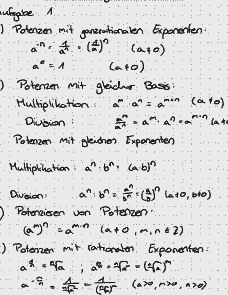 Aufgabe 1
) Potenzen mit ganzrationalen Exponenten:
a⁻ⁿ = 1/aⁿ = (1/a)ⁿ (a≠0)
a⁰ = 1 (a≠0)
) Potenzen mit gleicher Basis:
Multiplikation: aᵐ · aⁿ = aᵐ⁺ⁿ (a≠0)
Division: aᵐ/aⁿ = aᵐ : aⁿ = aᵐ⁻ⁿ (a≠
Potenzen mit gleichen Exponenten
Multiplikation: aⁿ · bⁿ = (a·b)ⁿ
Division: aⁿ : bⁿ = aⁿ/bⁿ = (a/b)ⁿ (a≠0, b≠0)
) Potenzieren von Potenzen:
(aᵐ)ⁿ = aᵐ·ⁿ (a≠0, m, n ∈ Z)
) Potenzen mit rationalen Exponenten:
(a>0, m>0, n>0)